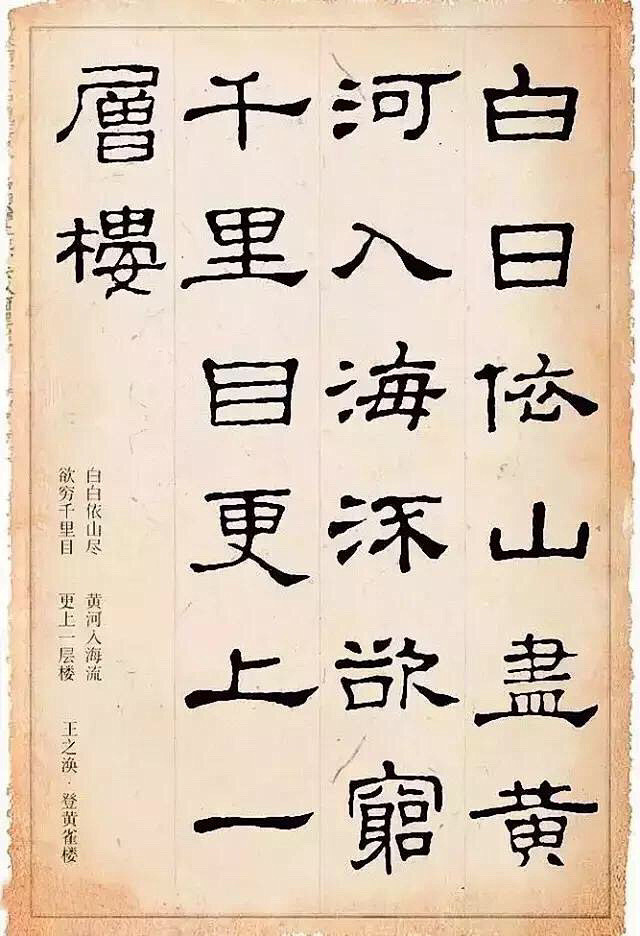 白日依山盡黄
河入海流欲窮
千里目更上一
層樓
白白依山尽 黄河入海流
欲穷千里目 更上一层楼 王之涣·登黄雀楼